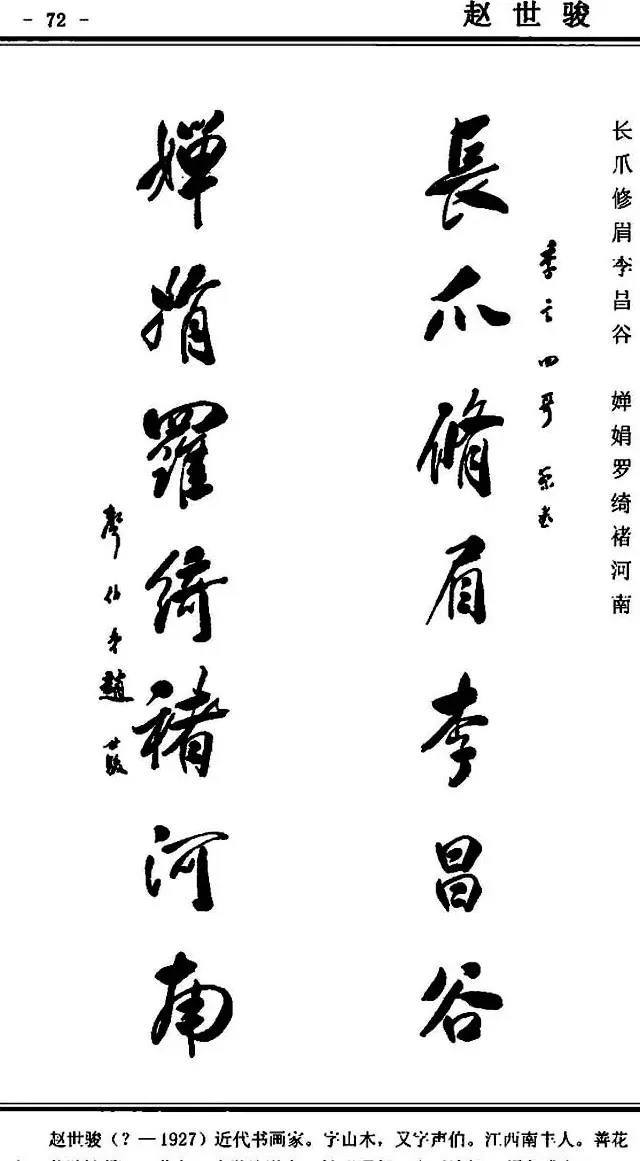 - 72 -
赵世骏
长爪修眉李昌谷 婵娟罗绮褚河南
季言四哥
長爪脩眉李昌谷
嬋娟羅綺褚河南
趙世駿
赵世骏（？—1927）近代书画家。字山木，又字声伯。江西南丰人。善花